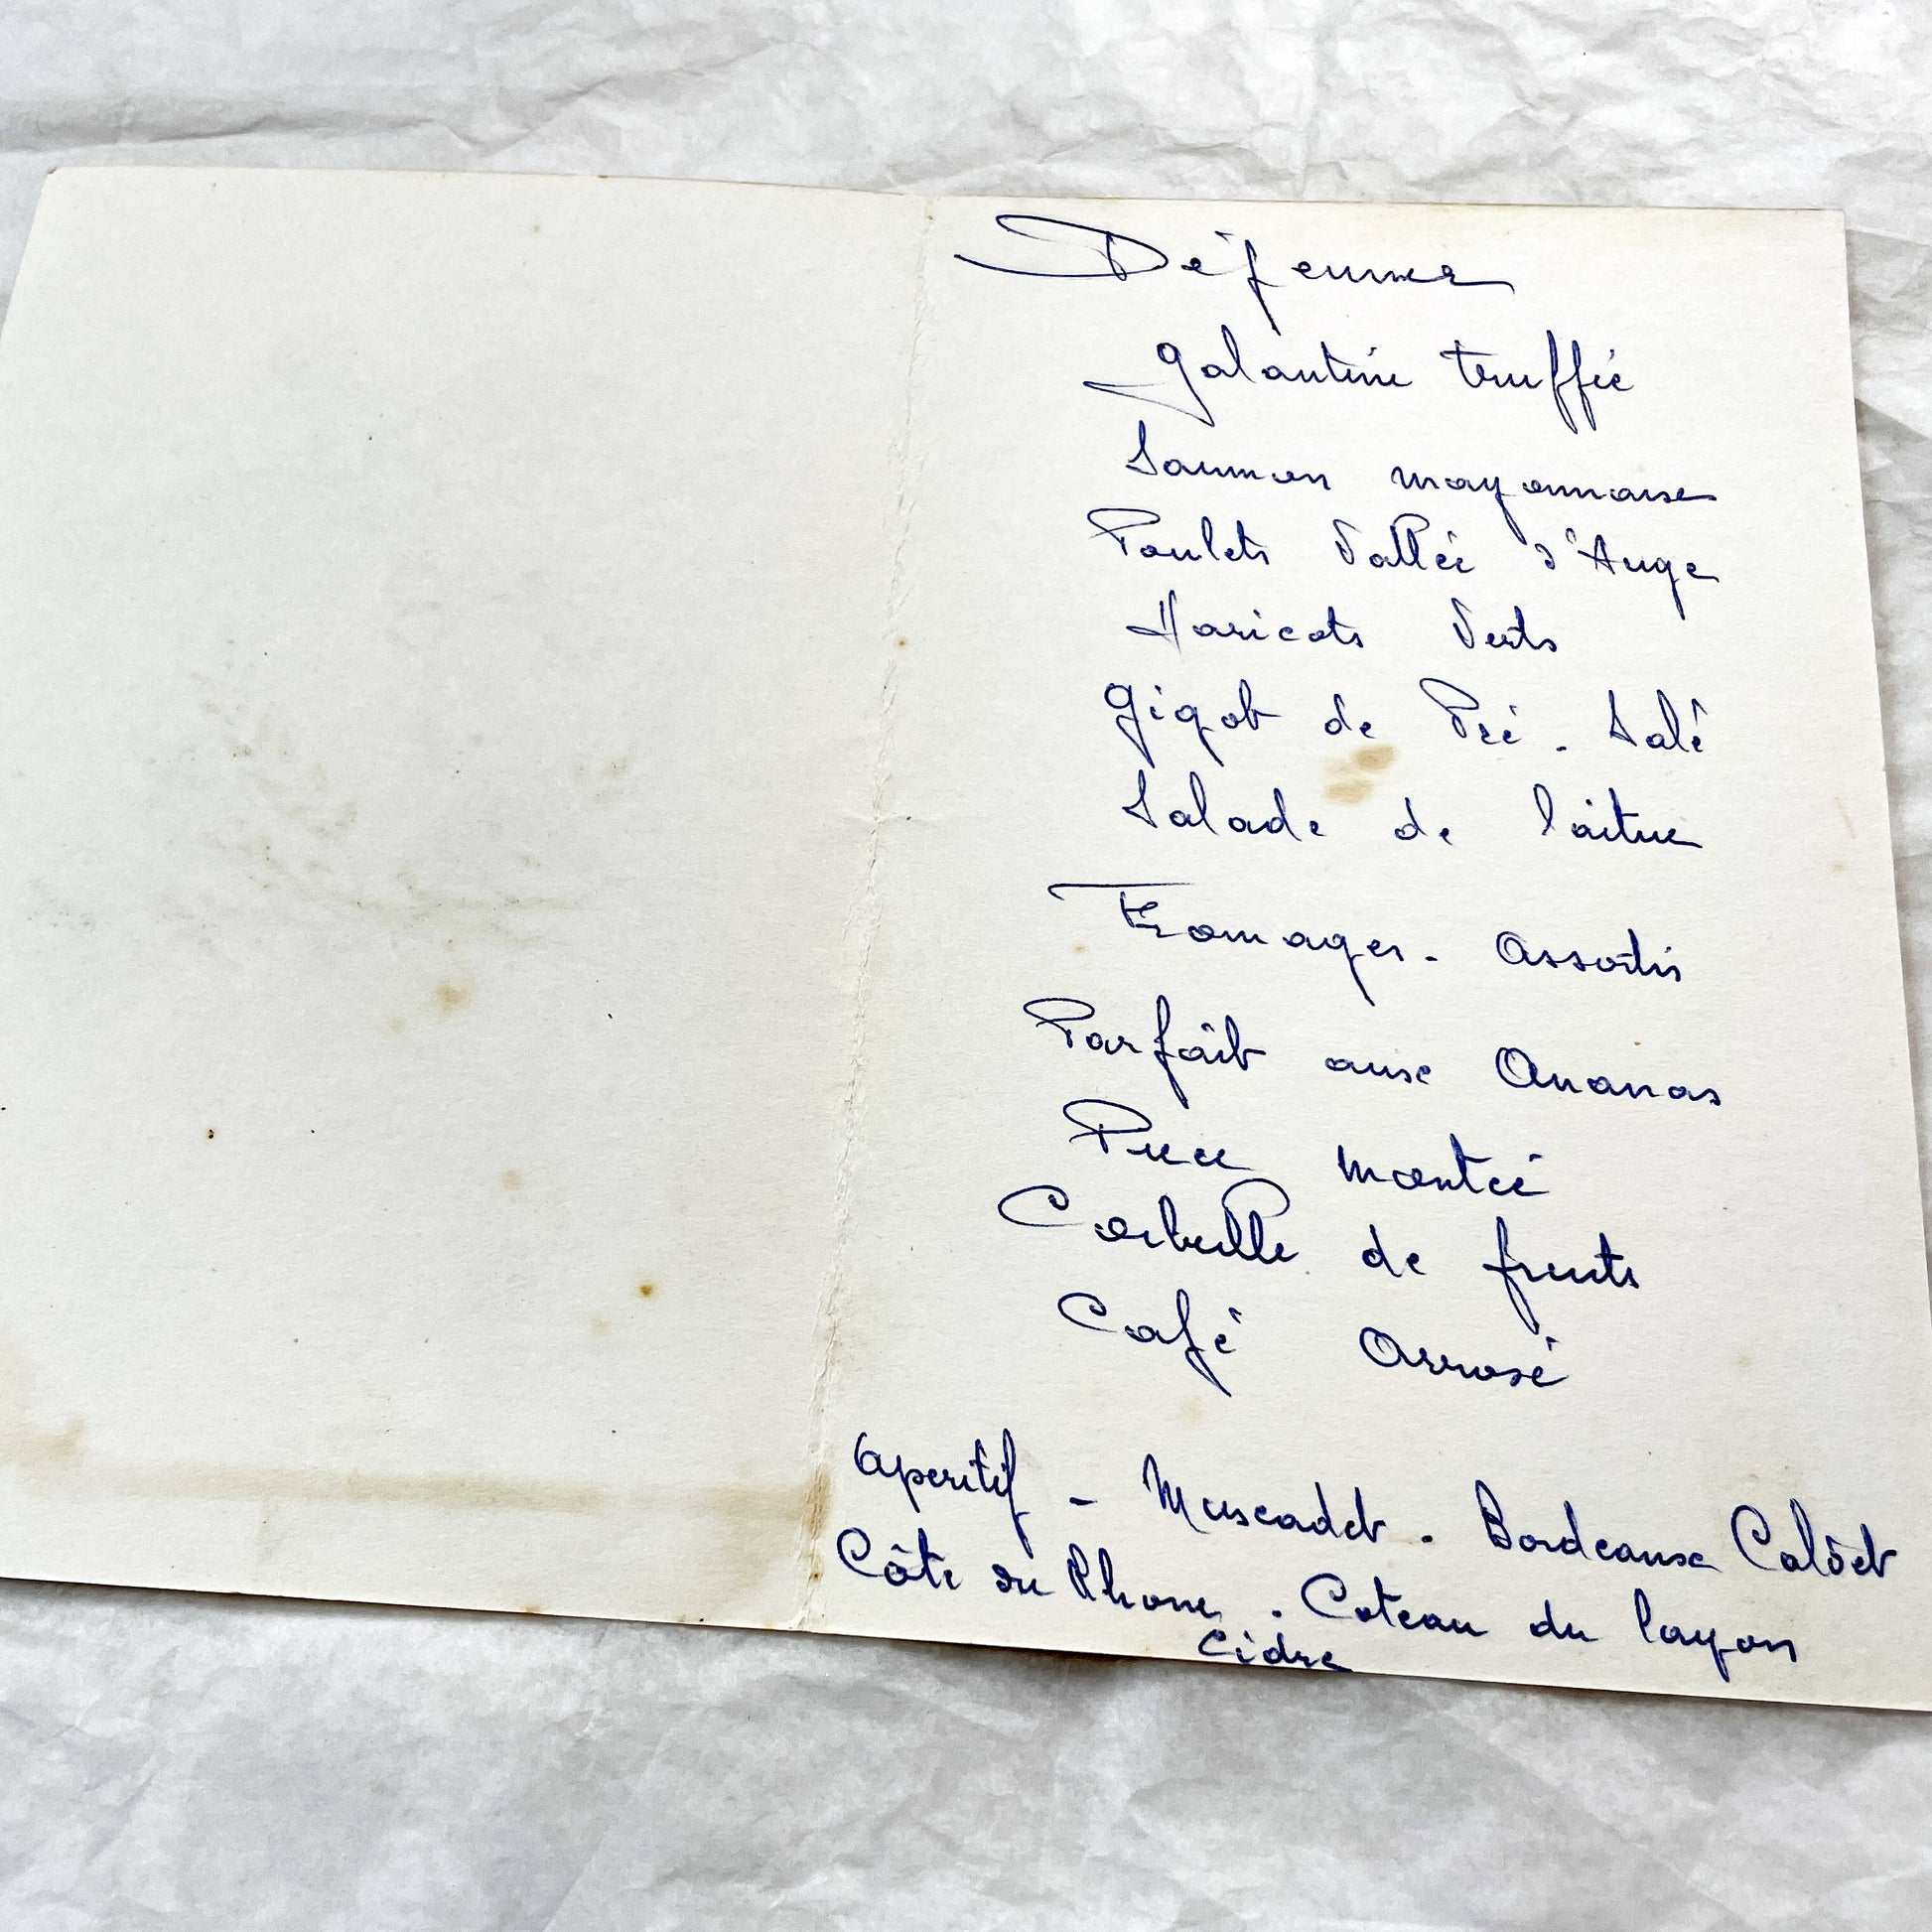 Déjeuner
Galantine truffée
Saumon mayonnaise
Poulets Vallée d'Auge
Haricots Verts
Gigot de Pré - Salé
Salade de laitue
Fromages - Assortis
Parfait aux Ananas
Piece montée
Corbeille de fruits
Café Arrosé
Aperitif - Muscadet - Bordeaux
Côte du Rhone - Coteau du layon
Cidre